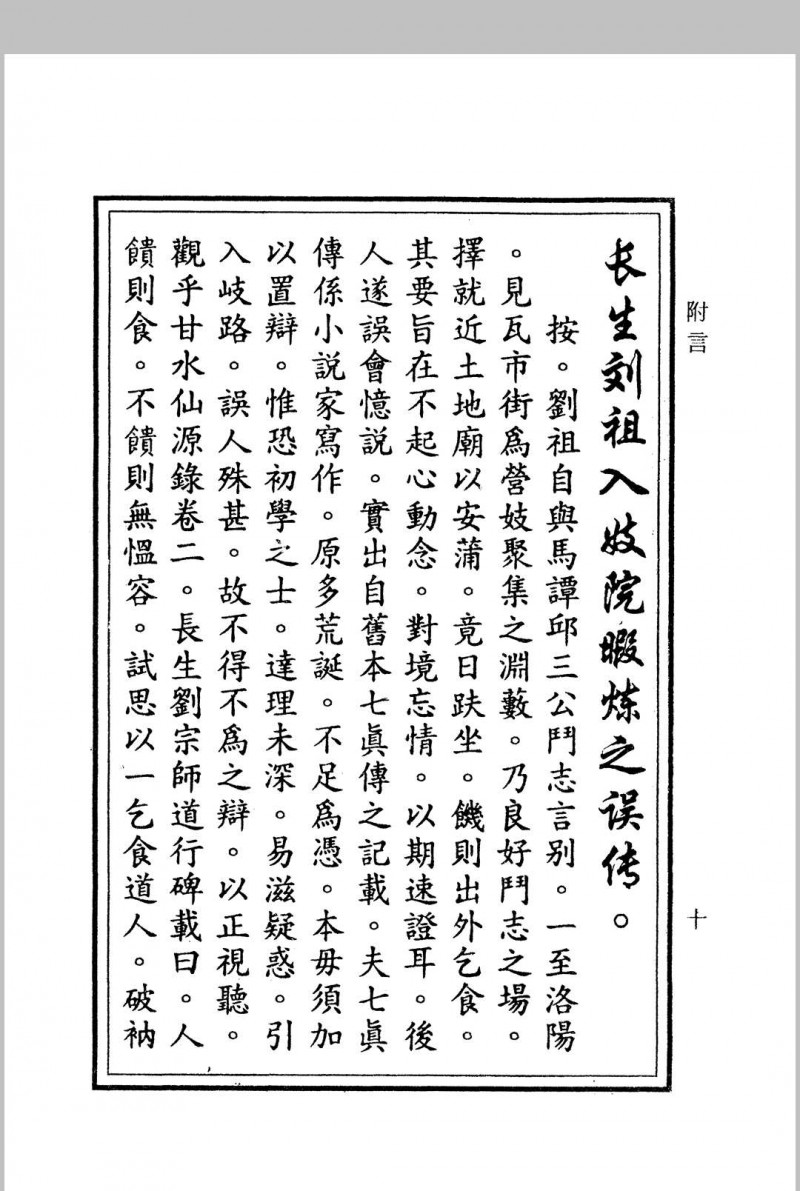 附言
长生刘祖入妓院煅炼之误传。
按。劉祖自與馬譚邱三公鬥志言別。一至洛陽
。見瓦市街爲營妓聚集之淵藪。乃良好鬥志之場。
擇就近土地廟以安蒲。竟日趺坐。饑則出外乞食。
其要旨在不起心動念。對境忘情。以期速證耳。後
人遂誤會憶説。實出自舊本七眞傳之記載。夫七眞
傳係小説家寫作。原多荒誕。不足爲憑。本毋須加
以置辯。惟恐初學之士。達理未深。易滋疑惑。引
入歧路。誤人殊甚。故不得不爲之辯。以正視聽。
觀乎甘水仙源錄卷二。長生劉宗師道行碑載曰。人
饋則食。不饋則無慍容。試思以一乞食道人。破衲
十